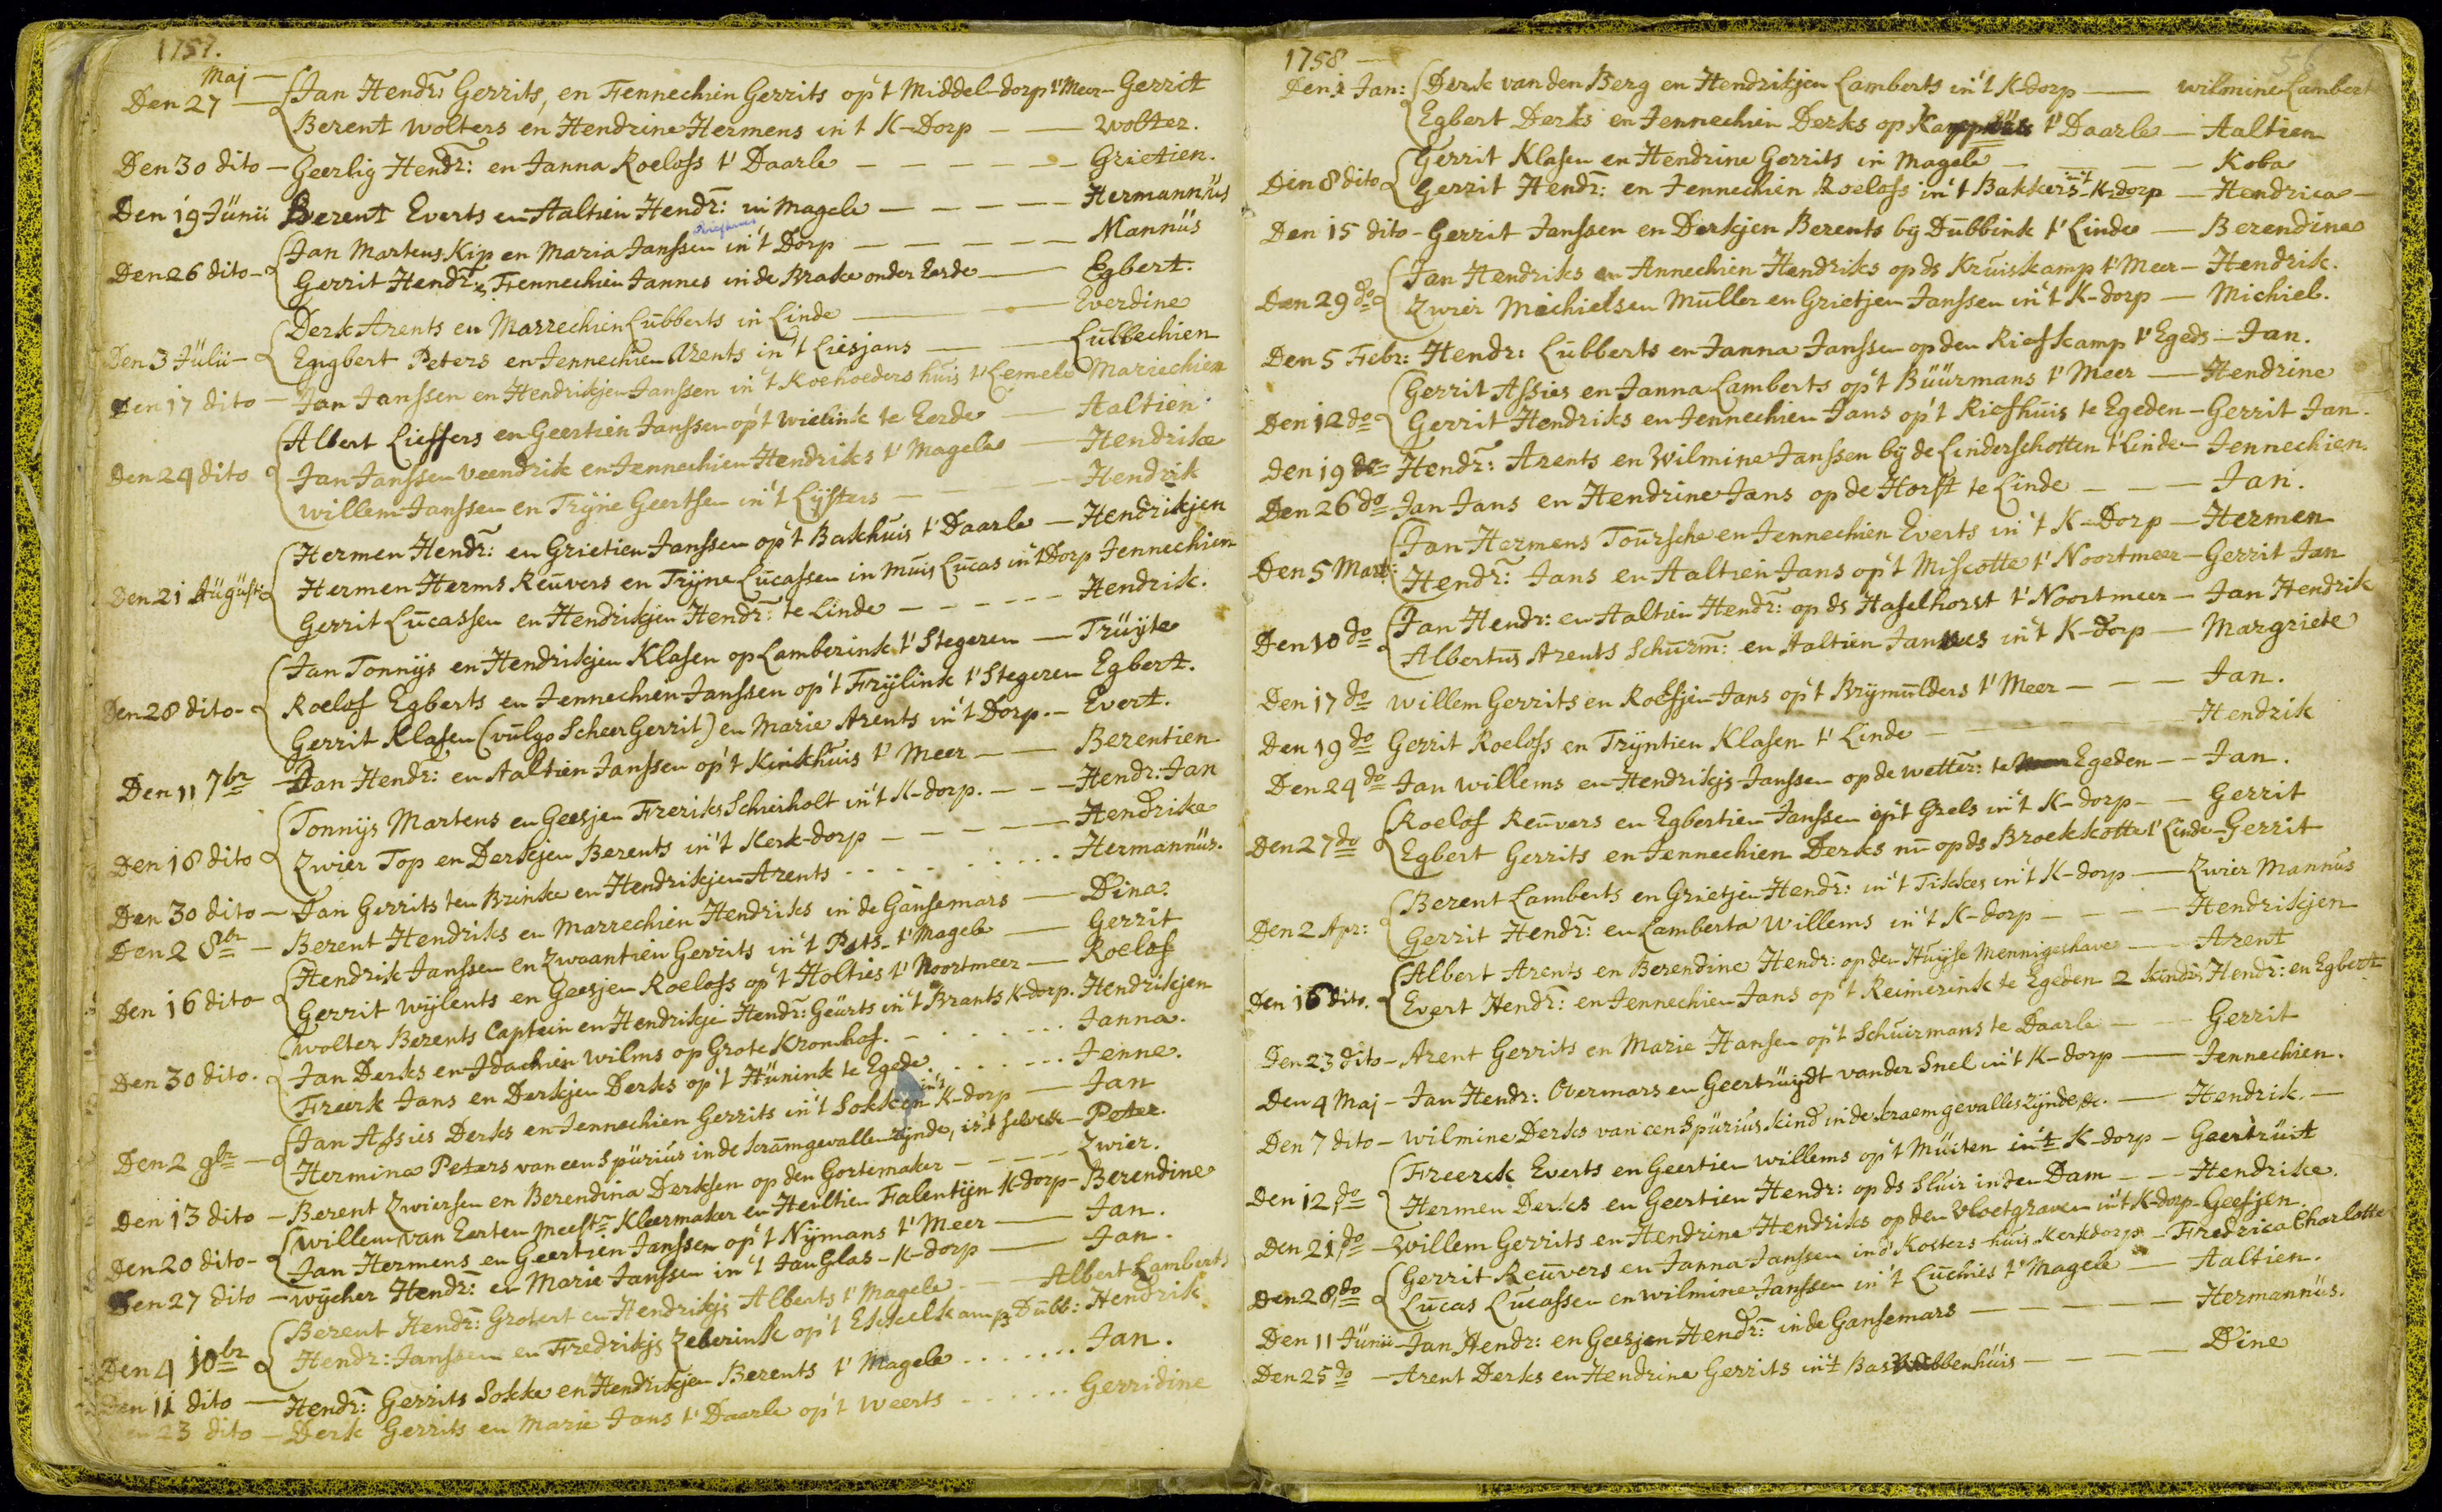 1757.
Maj
Den 27 — Jan Hendr: Gerrits, en Fennechien Gerrits op 't Middel-dorp t' Meer — Gerrit
Berent Wolters en Hendrine Hermens in 't K-Dorp — — Wolter.
Den 30 dito — Geerlig Hendr: en Janna Roelofs t' Daarle — — — — — Grietien.
Den 19 Junii Berent Everts en Aaltien Hendr: in Magele — — — — — Hermannus
Den 26 dito — Jan Martens Kip en Maria Janssen in 't Dorp — — — — — Mannus
Gerrit Hendr: Fennechien Jannes in de Brake onder Eerde — Egbert.
Den 3 Julii — Derk Arents en Marrechien Lubberts in Linde — Everdine
Engbert Peters en Jennechien Arents in 't Liesjans — Lubbechien
Den 17 dito — Jan Janssen en Hendrikjen Janssen in 't Koehoeders huis t' Lemele Mariechien
Den 24 dito Albert Lieffers en Geertien Janssen op 't Wielink te Eerde — Aaltien
Jan Janssen Veendrik en Jennechien Hendriks t' Magele — Hendrike
Willem Janssen en Trijne Geertsen in 't Lijsters — Hendrik
Den 21 Augusti Hermen Hendr: en Grietien Janssen op 't Bakhuis t' Daarle — Hendrikjen
Hermen Herms Reuvers en Trijne Lucassen in Muis Lucas in 't Dorp Jennechien
Gerrit Lucassen en Hendrikjen Hendr: te Linde — — — — — Hendrik.
Den 28 dito — Jan Tonnijs en Hendrikjen Klasen op Lamberink t' Stegeren — Truijte
Roelof Egberts en Jennechien Janssen op 't Frijlink t' Stegeren Egbert.
Gerrit Klasen (vulgo Scheer Gerrit) en Marie Arents in 't Dorp. — Evert.
Den 11 7br — Jan Hendr: en Aaltien Janssen op 't Kinkhuis t' Meer — — Berentien
Den 18 dito Tonnijs Martens en Geesjen Freriks Schierholt in 't K-dorp. — — Hendr: Jan
Zwier Top en Derkjen Berents in 't Kerk-dorp — — — — — Hendrike
Den 30 dito — Jan Gerrits ten Brinke en Hendrikjen Arents . . . . Hermannus.
Den 2 8br — Berent Hendriks en Marrechien Hendriks in de Gansemars — Dina.
Den 16 dito Hendrik Janssen en Zwaantien Gerrits in 't Pots- t' Magele — Gerrit
Gerrit Wijlents en Geesjen Roelofs op 't Holties t' Noortmeer — Roelof
Den 30 dito. Wolter Berents Captein en Hendrikje Hendr: Geurts in 't Brants K-dorp. Hendrikjen
Jan Derks en Idachien Wilms op Grote Kromhof. — . . . . . Janna.
Freerk Jans en Derkjen Derks op 't Hunink te Egede. . . . . . Jenne.
Den 2 9br — Jan Assies Derks en Jennechien Gerrits in 't Sokken in 't K-dorp — Jan
Hermina Peters van een Spurius in de kramgevallen zijnde, is 't selve — Peter.
Den 13 dito — Berent Zwiersen en Berendina Derksen op den Gortemaker — — — Zwier.
Den 20 dito — Willem van Eerten Meestr Kleermaker en Heiltien Falentijn K-dorp — Berendine
Jan Hermens en Geertien Janssen op 't Nijmans t' Meer — Jan.
Den 27 dito — Wijcher Hendr: en Marie Janssen in 't Jan Glas - K-dorp — Jan.
Den 4 10br Berent Hendr: Grotert en Hendrikjs Alberts t' Magele — Albert Lamberts
Hendr: Janssen en Fredrikjs Zeberink op 't Ekkelkamp Dubb: Hendrik
Den 11 dito — Hendr: Gerrits Sokke en Hendrikjen Berents t' Magele . . . . . . Jan.
Den 23 dito — Derk Gerrits en Marie Jans t' Daarle op 't Weerts . . . . Gerridine
1758 — 56
Den 1 Jan: Derk van den Berg en Hendrikjen Lamberts in 't K-dorp — Wilmine Lambert
Egbert Derks en Jennechien Derks op t' Daarle — Aaltien
Den 8 dito Gerrit Klasen en Hendrine Gerrits in Magele — Koba
Gerrit Hendr: en Jennechien Roelofs in 't Bakkers in 't K-dorp — Hendrica
Den 15 dito — Gerrit Janssen en Derkjen Berents bij Dubbink t' Linde — Berendine
Den 29 do Jan Hendriks en Annechien Hendriks op ds Kruiskamp t' Meer — Hendrik.
Zwier Michielsen Muller en Grietjen Janssen in 't K-dorp — Michiel.
Den 5 Febr: Hendr: Lubberts en Janna Janssen op den Riefkamp t' Egeds — Jan.
Den 12 do Gerrit Assies en Janna Lamberts op 't Buurmans t' Meer — Hendrine
Gerrit Hendriks en Jennechien Jans op 't Riefhuis te Egeden — Gerrit Jan.
Den 19 do Hendr: Arents en Wilmine Janssen bij de Linderschotten t' Linde — Jennechien.
Den 26 do Jan Jans en Hendrine Jans op de Horst te Linde — — — Jan.
Den 5 Mart: Jan Hermens Toursche en Jennechien Everts in 't K-Dorp — Hermen
Hendr: Jans en Aaltien Jans op 't Miscotte t' Noortmeer — Gerrit Jan
Den 10 do Jan Hendr: en Aaltien Hendr: op ds Haselhorst t' Noortmeer — Jan Hendrik
Albertus Arents Schurm: en Aaltien Jannes in 't K-dorp — Margriete
Den 17 do Willem Gerrits en Roelfjen Jans op 't Brijmulders t' Meer — — — Jan.
Den 19 do Gerrit Roelofs en Trijntien Klasen t' Linde — Hendrik
Den 24 do Jan Willems en Hendrikjs Janssen op de Wetter: te Egeden — — Jan.
Den 27 do Roelof Reuvers en Egbertien Janssen op 't Grels in 't K-dorp — — Gerrit
Egbert Gerrits en Jennechien Derks nu op ds Broekkotte t' Linde — Gerrit
Den 2 Apr: Berent Lamberts en Grietjen Hendr: in 't Tikkes in 't K-dorp — Zwier Mannus
Gerrit Hendr: en Lamberta Willems in 't K-dorp — — — — Hendrikjen
Den 16 dito. Albert Arents en Berendine Hendr: op den Huijse Mennigeshave — Arent
Evert Hendr: en Jennechien Jans op 't Reimerink te Egeden 2 kindr: Hendr: en Egbert
Den 23 dito — Arent Gerrits en Marie Hansen op 't Schuirmans te Daarle — — Gerrit
Den 4 Maj — Jan Hendr: Overmars en Geertruijdt van der Snel in 't K-dorp — Jennechien.
Den 7 dito — Wilmine Derks van een Spurius kind in de kraem gevallen zijnde, &c. — Hendrik. —
Den 12 do Freerck Everts en Geertien Willems op 't Muiten in 't K-dorp — Geertruit
Hermen Derks en Geertien Hendr: op ds Sluis in den Dam — — Hendrike.
Den 21 do — Willem Gerrits en Hendrine Hendriks op den Vloetgraven in 't K-dorp — Geesjen.
Den 28 do Gerrit Reuvers en Janna Janssen in d' Kosters huis Kerkdorp — Fredrica Charlotte
Lucas Lucassen en Wilmine Janssen in 't Luchies t' Magele — Aaltien.
Den 11 Junii — Jan Hendr: en Geesjen Hendr: in de Gansemars — — — — — Hermannus.
Den 25 do — Arent Derks en Hendrine Gerrits in 't — — — — Dine